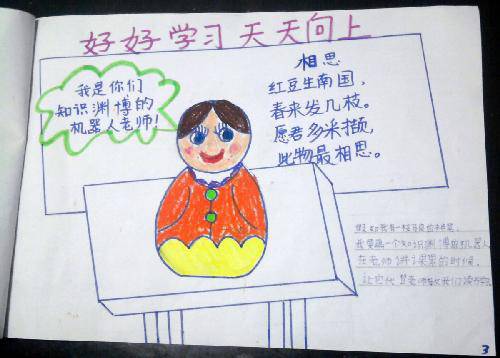 好好学习天天向上
我是你们
知识渊博的
机器人老师!
相思
红豆生南国,
春来发几枝。
愿君多采撷,
此物最相思。
我要画一个知识渊博的机器人
在老师讲课累的时候,
让它代替老师教我们读
3